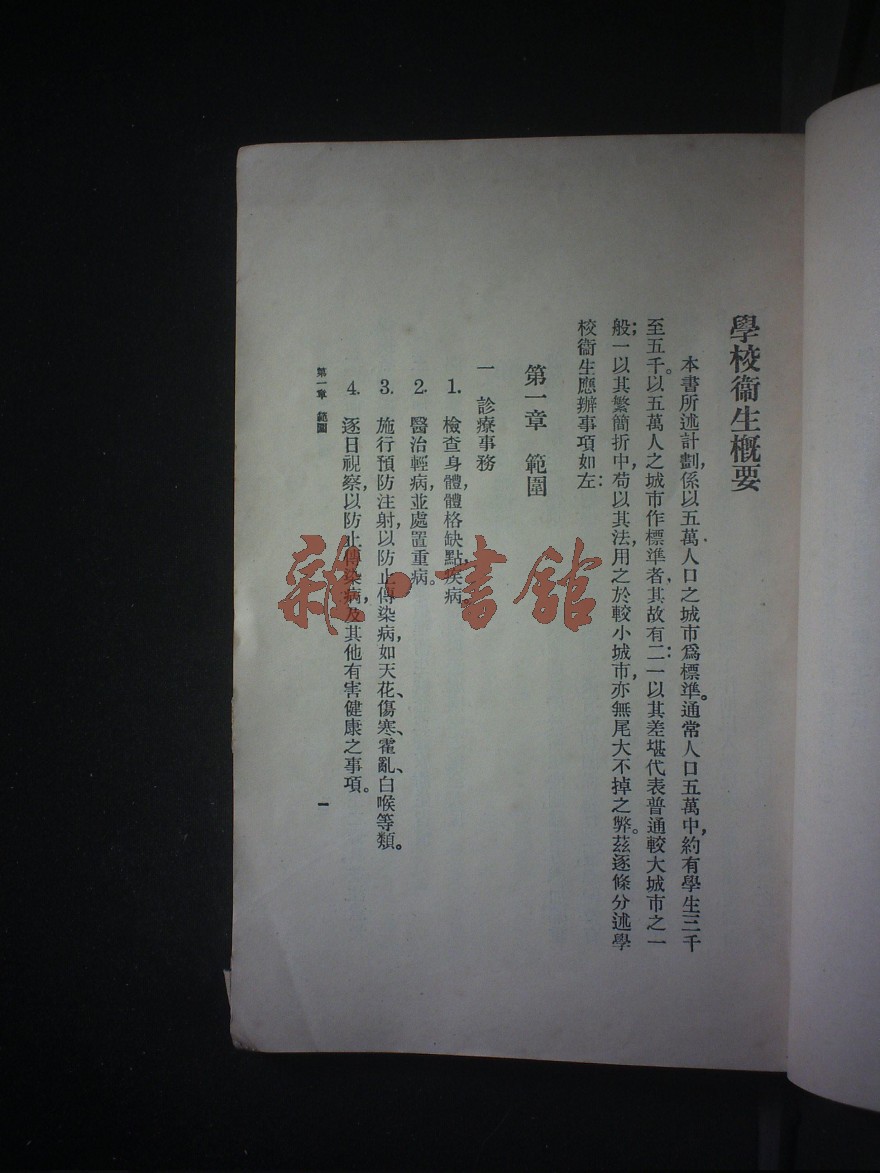 學校衞生概要
本書所述計劃,係以五萬人口之城市爲標準。通常人口五萬中,約有學生三千
至五千。以五萬人之城市作標準者,其故有二:一以其差堪代表普通較大城市之一
般;一以其繁簡折中,苟以其法用之於較小城市,亦無尾大不掉之弊。茲逐條分述學
校衞生應辦事項如左:
第一章 範圍
一 診療事務
1. 檢查身體,體格缺點,疾病。
2. 醫治輕病,並處置重病。
3. 施行預防注射,以防止傳染病,如天花、傷寒、霍亂、白喉等類。
4. 逐日視察,以防止傳染病,及其他有害健康之事項。
第一章 範圍
一
雜·書館